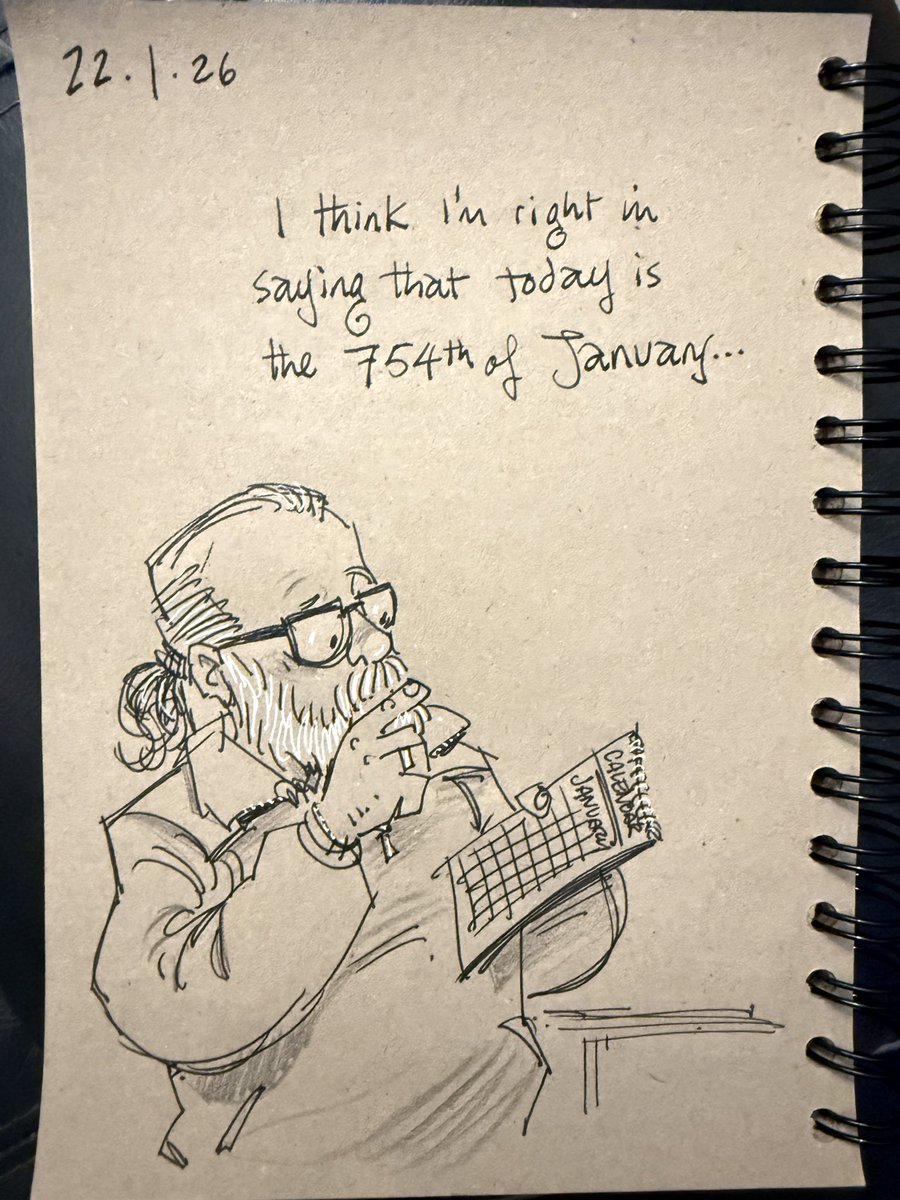 22.1.26
I think I'm right in
saying that today is
the 754th of January...
CALENDAR
JANUARY